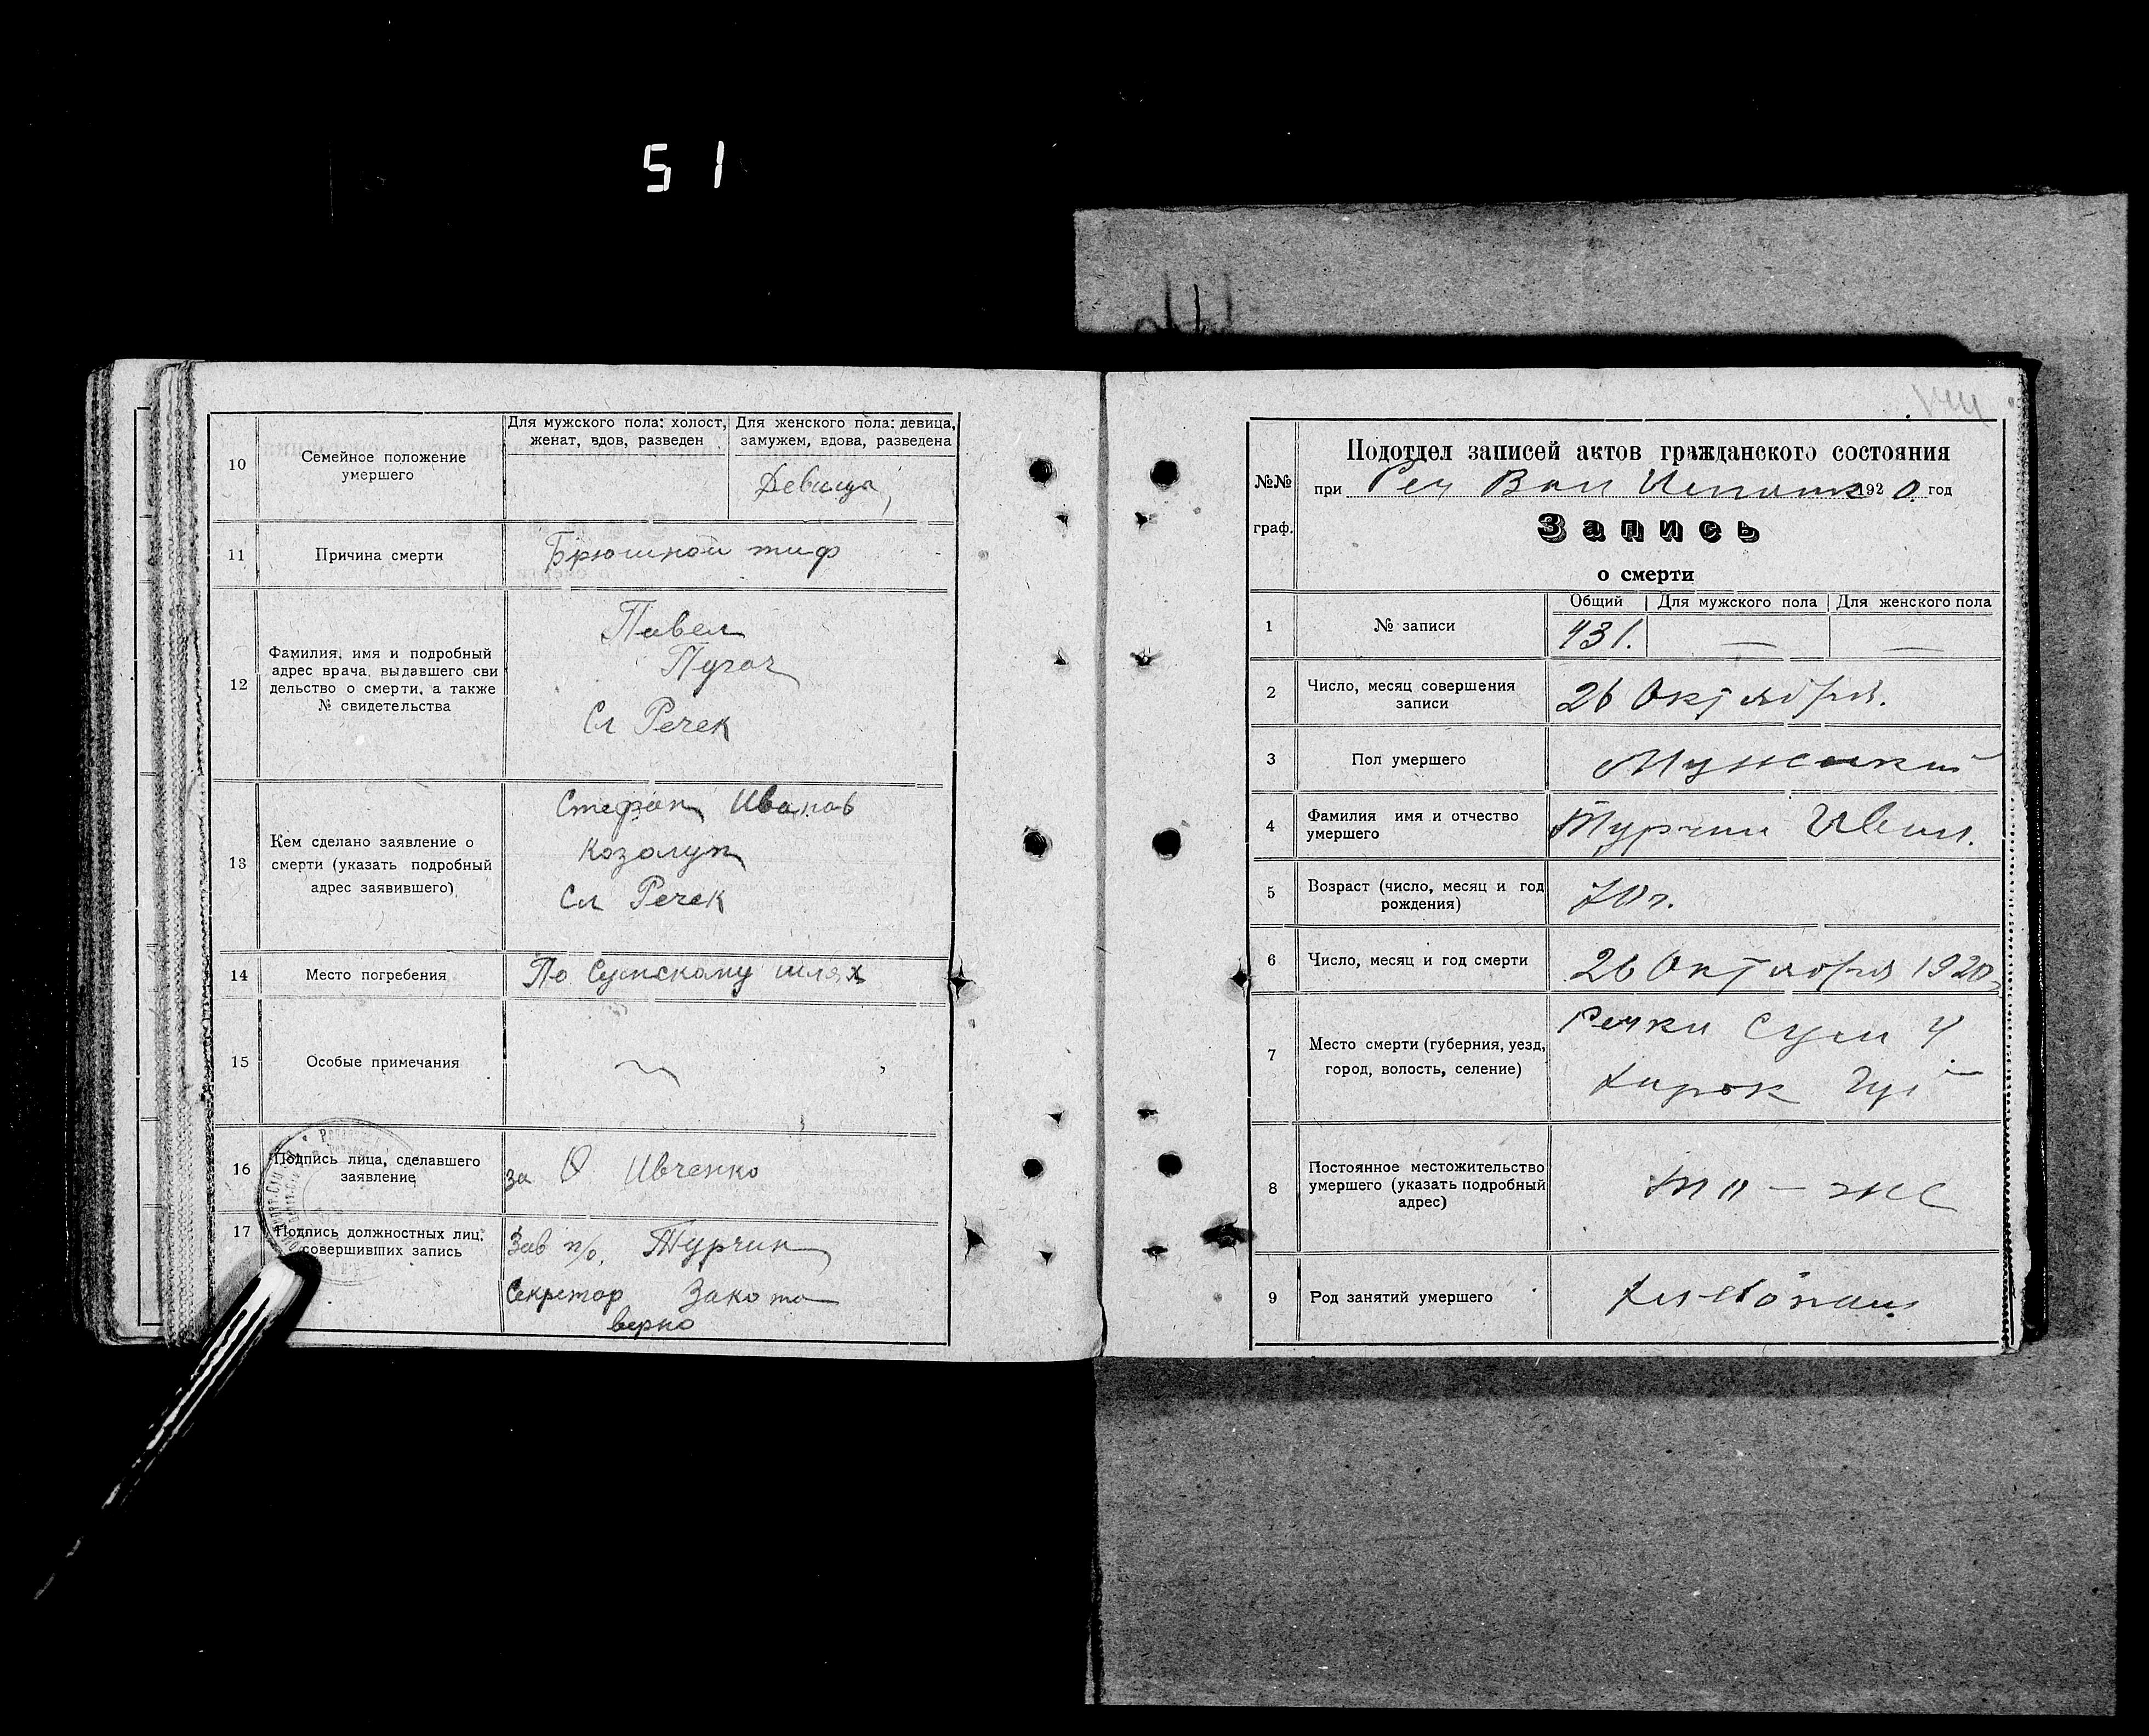 51
10
Семейное положение
умершего
Для мужского пола: холост,
женат, вдов, разведен
Для женского пола: девица,
замужем, вдова, разведена
Девица
11
Причина смерти
Брюшной тиф
12
Фамилия, имя и подробный
адрес врача, выдавшего сви
дельство о смерти, а также
№ свидетельства
Павел
Пугач
Сл Речек
13
Кем сделано заявление о
смерти (указать подробный
адрес заявившего)
Стефан Иванов
Козолуп
Сл Речек
14
Место погребения
По Сумскому шлях
15
Особые примечания
16
Подпись лица, сделавшего
заявление
за О Ивченко
17
Подпись должностных лиц,
совершивших запись
Зав п/о. Турчин
Секретар Закота
верно
№№
граф.
Подотдел записей актов гражданского состояния
при Реч Вол 1920 год
Запись
о смерти
1
№ записи
Общий
Для мужского пола
Для женского пола
431. — —
2
Число, месяц совершения
записи
26 Октября.
3
Пол умершего
Мужский
4
Фамилия имя и отчество
умершего
Турчин Иван.
5
Возраст (число, месяц и год
рождения)
70 г.
6
Число, месяц и год смерти
26 Октября 1920
7
Место смерти (губерния, уезд,
город, волость, селение)
Речки Сум У
Харьк Губ
8
Постоянное местожительство
умершего (указать подробный
адрес)
то — же
9
Род занятий умершего
Хлебопаш